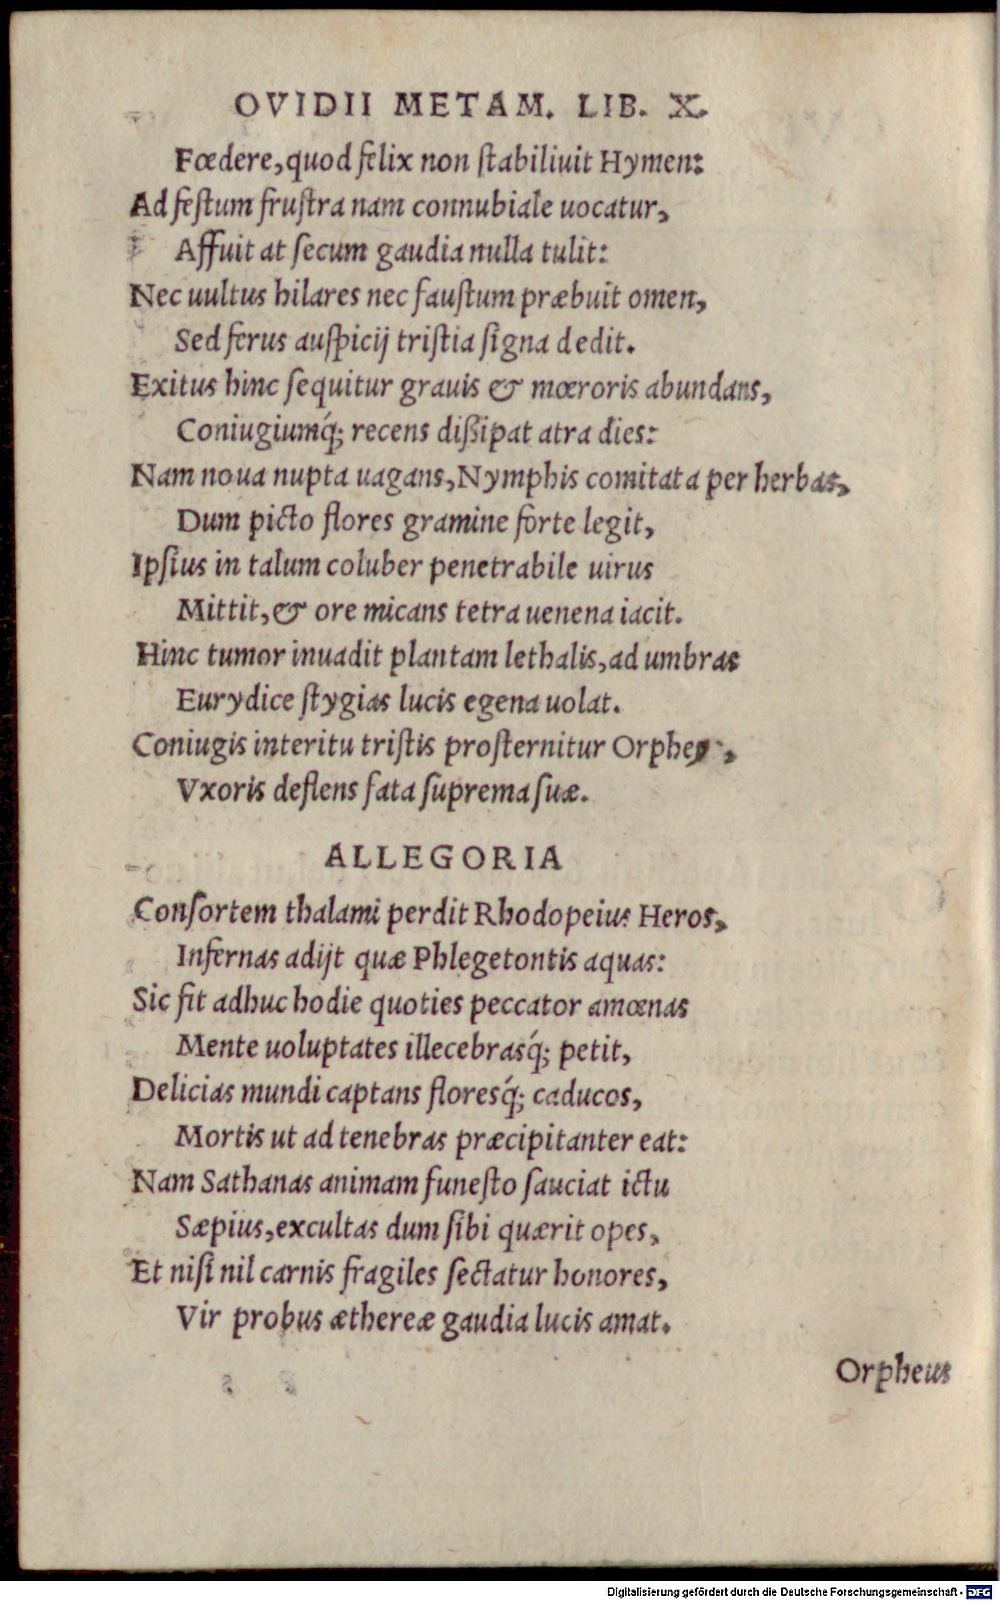 OVIDII METAM. LIB. X.
Fœdere, quod felix non ſtabiliuit Hymen:
Ad feſtum fruſtra nam connubiale uocatur,
Affuit at ſecum gaudia nulla tulit:
Nec uultus hilares nec fauſtum præbuit omen,
Sed ferus auſpicij triſtia ſigna dedit.
Exitus hinc ſequitur grauis & mœroris abundans,
Coniugiumq́; recens diſsipat atra dies:
Nam noua nupta uagans, Nymphis comitata per herbas,
Dum picto flores gramine forte legit,
Ipſius in talum coluber penetrabile uirus
Mittit, & ore micans tetra uenena iacit.
Hinc tumor inuadit plantam lethalis, ad umbras
Eurydice ſtygias lucis egena uolat.
Coniugis interitu triſtis proſternitur Orpheus,
Vxoris deflens fata ſuprema ſuæ.
ALLEGORIA
Conſortem thalami perdit Rhodopeius Heros,
Infernas adijt quæ Phlegetontis aquas:
Sic fit adhuc hodie quoties peccator amœnas
Mente uoluptates illecebrasq́; petit,
Delicias mundi captans floresq́; caducos,
Mortis ut ad tenebras præcipitanter eat:
Nam Sathanas animam funeſto ſauciat ictu
Sæpius, excultas dum ſibi quærit opes,
Et niſi nil carnis fragiles ſectatur honores,
Vir probus æthereæ gaudia lucis amat.
Orpheus
Digitalisierung gefördert durch die Deutsche Forschungsgemeinschaft - DFG